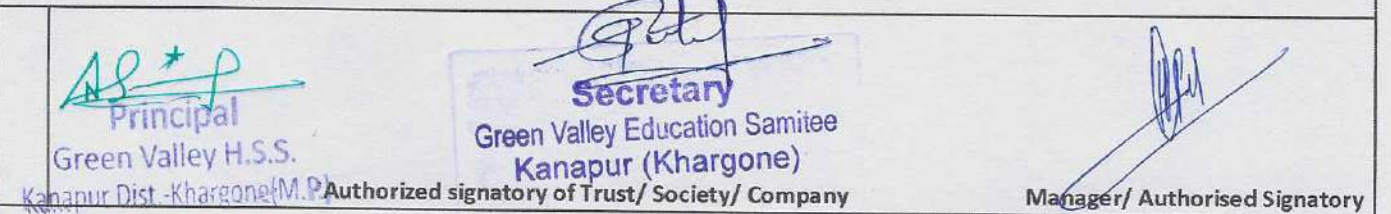 Principal
Green Valley H.S.S.
Kanapur Dist.-Khargone(M.P.)
Secretary
Green Valley Education Samitee
Kanapur (Khargone)
Authorized signatory of Trust/ Society/ Company
Manager/ Authorised Signatory